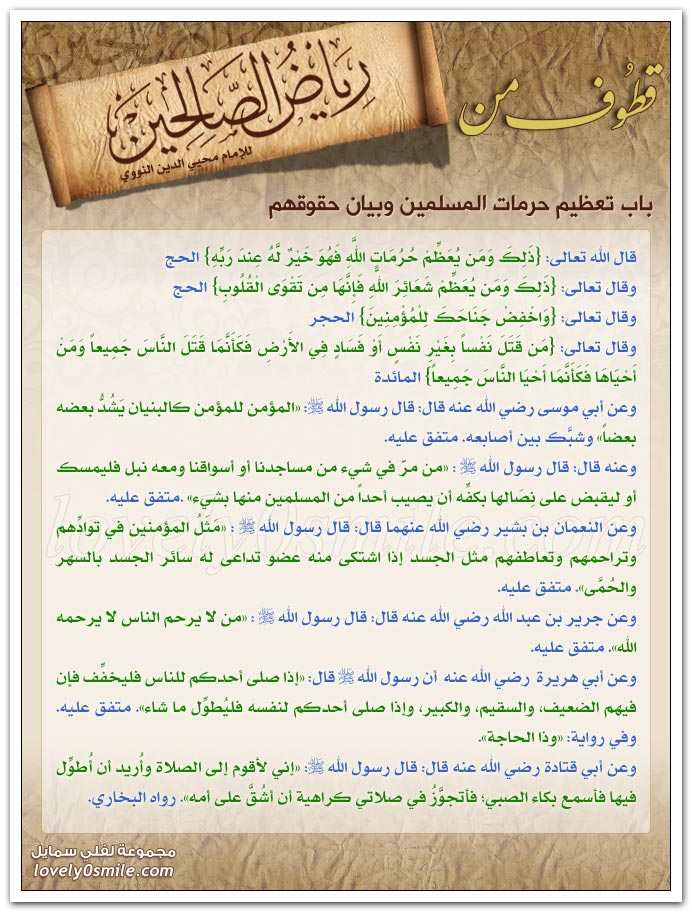 قطوف من
رياض الصالحين
للإمام محيي الدين النووي
باب تعظيم حرمات المسلمين وبيان حقوقهم
قال الله تعالى: {ذَلِكَ وَمَن يُعَظِّمْ حُرُمَاتِ اللَّهِ فَهُوَ خَيْرٌ لَّهُ عِندَ رَبِّهِ} الحج
وقال تعالى: {ذَلِكَ وَمَن يُعَظِّمْ شَعَائِرَ اللهِ فَإِنَّهَا مِن تَقْوَى الْقُلُوبِ} الحج
وقال تعالى: {وَاخْفِضْ جَنَاحَكَ لِلْمُؤْمِنِينَ} الحجر
وقال تعالى: {مَن قَتَلَ نَفْساً بِغَيْرِ نَفْسٍ أَوْ فَسَادٍ فِي الأَرْضِ فَكَأَنَّمَا قَتَلَ النَّاسَ جَمِيعاً وَمَنْ
أَحْيَاهَا فَكَأَنَّمَا أَحْيَا النَّاسَ جَمِيعاً} المائدة
وعن أبي موسى رضي الله عنه قال: قال رسول الله ﷺ: «المؤمن للمؤمن كالبنيان يَشُدُّ بعضه
بعضاً» وشبَّك بين أصابعه. متفق عليه.
وعنه قال: قال رسول الله ﷺ : «من مرّ في شيء من مساجدنا أو أسواقنا ومعه نبل فليمسك
أو ليقبض على نِصَالها بكفِّه أن يصيب أحداً من المسلمين منها بشيء» .متفق عليه.
وعن النعمان بن بشير رضي الله عنهما قال: قال رسول الله ﷺ : «مَثَلُ المؤمنين في توادِّهم
وتراحمهم وتعاطفهم مثل الجسد إذا اشتكى منه عضو تداعى له سائر الجسد بالسهر
والحُمَّى». متفق عليه.
وعن جرير بن عبد الله رضي الله عنه قال: قال رسول الله ﷺ : «من لا يرحم الناس لا يرحمه
الله». متفق عليه.
وعن أبي هريرة رضي الله عنه أن رسول الله ﷺ قال: «إذا صلى أحدكم للناس فليخفِّف فإن
فيهم الضعيف، والسقيم، والكبير، وإذا صلى أحدكم لنفسه فليُطوِّل ما شاء». متفق عليه.
وفي رواية: «وذا الحاجة».
وعن أبي قتادة رضي الله عنه قال: قال رسول الله ﷺ: «إني لأقوم إلى الصلاة وأُريد أن أُطوِّل
فيها فأسمع بكاء الصبي؛ فأتجوَّزُ في صلاتي كراهية أن أشُقَّ على أمه». رواه البخاري.
lovely0smile.com
مجموعة لفلي سمايل
lovely0smile.com